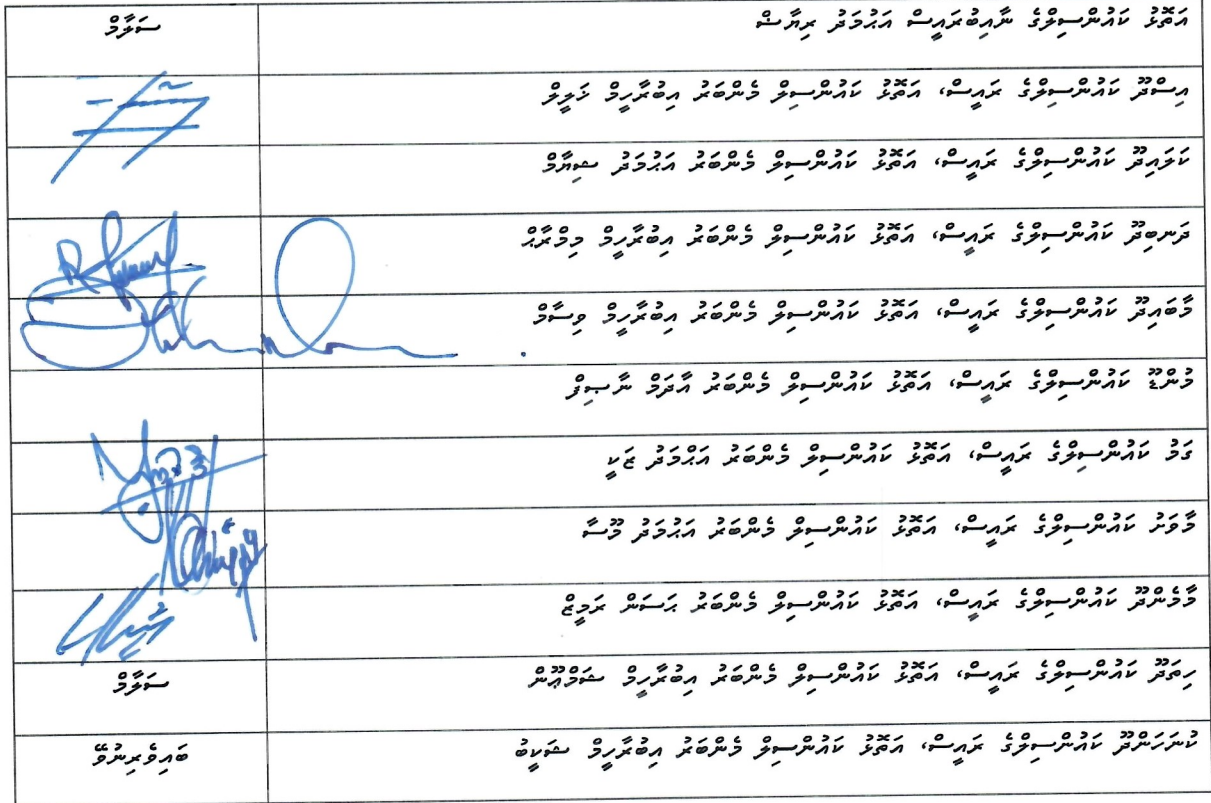 އަތޮޅު ކައުންސިލްގެ ނާއިބުރައީސް އަޙުމަދު ރިޔާޟް ސަލާމް
އިސްދޫ ކައުންސިލްގެ ރައީސް، އަތޮޅު ކައުންސިލް މެންބަރު އިބުރާހީމް ޚަލީލް
ކަލައިދޫ ކައުންސިލްގެ ރައީސް، އަތޮޅު ކައުންސިލް މެންބަރު އަޙުމަދު ޝިޔާމް
ދަނބިދޫ ކައުންސިލްގެ ރައީސް، އަތޮޅު ކައުންސިލް މެންބަރު އިބުރާހީމް މިމްރާޙް
މާބައިދޫ ކައުންސިލްގެ ރައީސް، އަތޮޅު ކައުންސިލް މެންބަރު އިބުރާހީމް ވިސާމް
މުންޑޫ ކައުންސިލްގެ ރައީސް، އަތޮޅު ކައުންސިލް މެންބަރު އާދަމް ނާޞިފް
ގަމު ކައުންސިލްގެ ރައީސް، އަތޮޅު ކައުންސިލް މެންބަރު އަޙްމަދު ޒަކީ
މާވަށު ކައުންސިލްގެ ރައީސް، އަތޮޅު ކައުންސިލް މެންބަރު އަޙުމަދު މޫސާ
މާމެންދޫ ކައުންސިލްގެ ރައީސް، އަތޮޅު ކައުންސިލް މެންބަރު ޙަސަން ރަމީޒް
ހިތަދޫ ކައުންސިލްގެ ރައީސް، އަތޮޅު ކައުންސިލް މެންބަރު އިބުރާހީމް ޝަމްޢޫން ސަލާމް
ކުނަހަންދޫ ކައުންސިލްގެ ރައީސް، އަތޮޅު ކައުންސިލް މެންބަރު އިބުރާހީމް ޝަކީބު ބައިވެރިނުވޭ